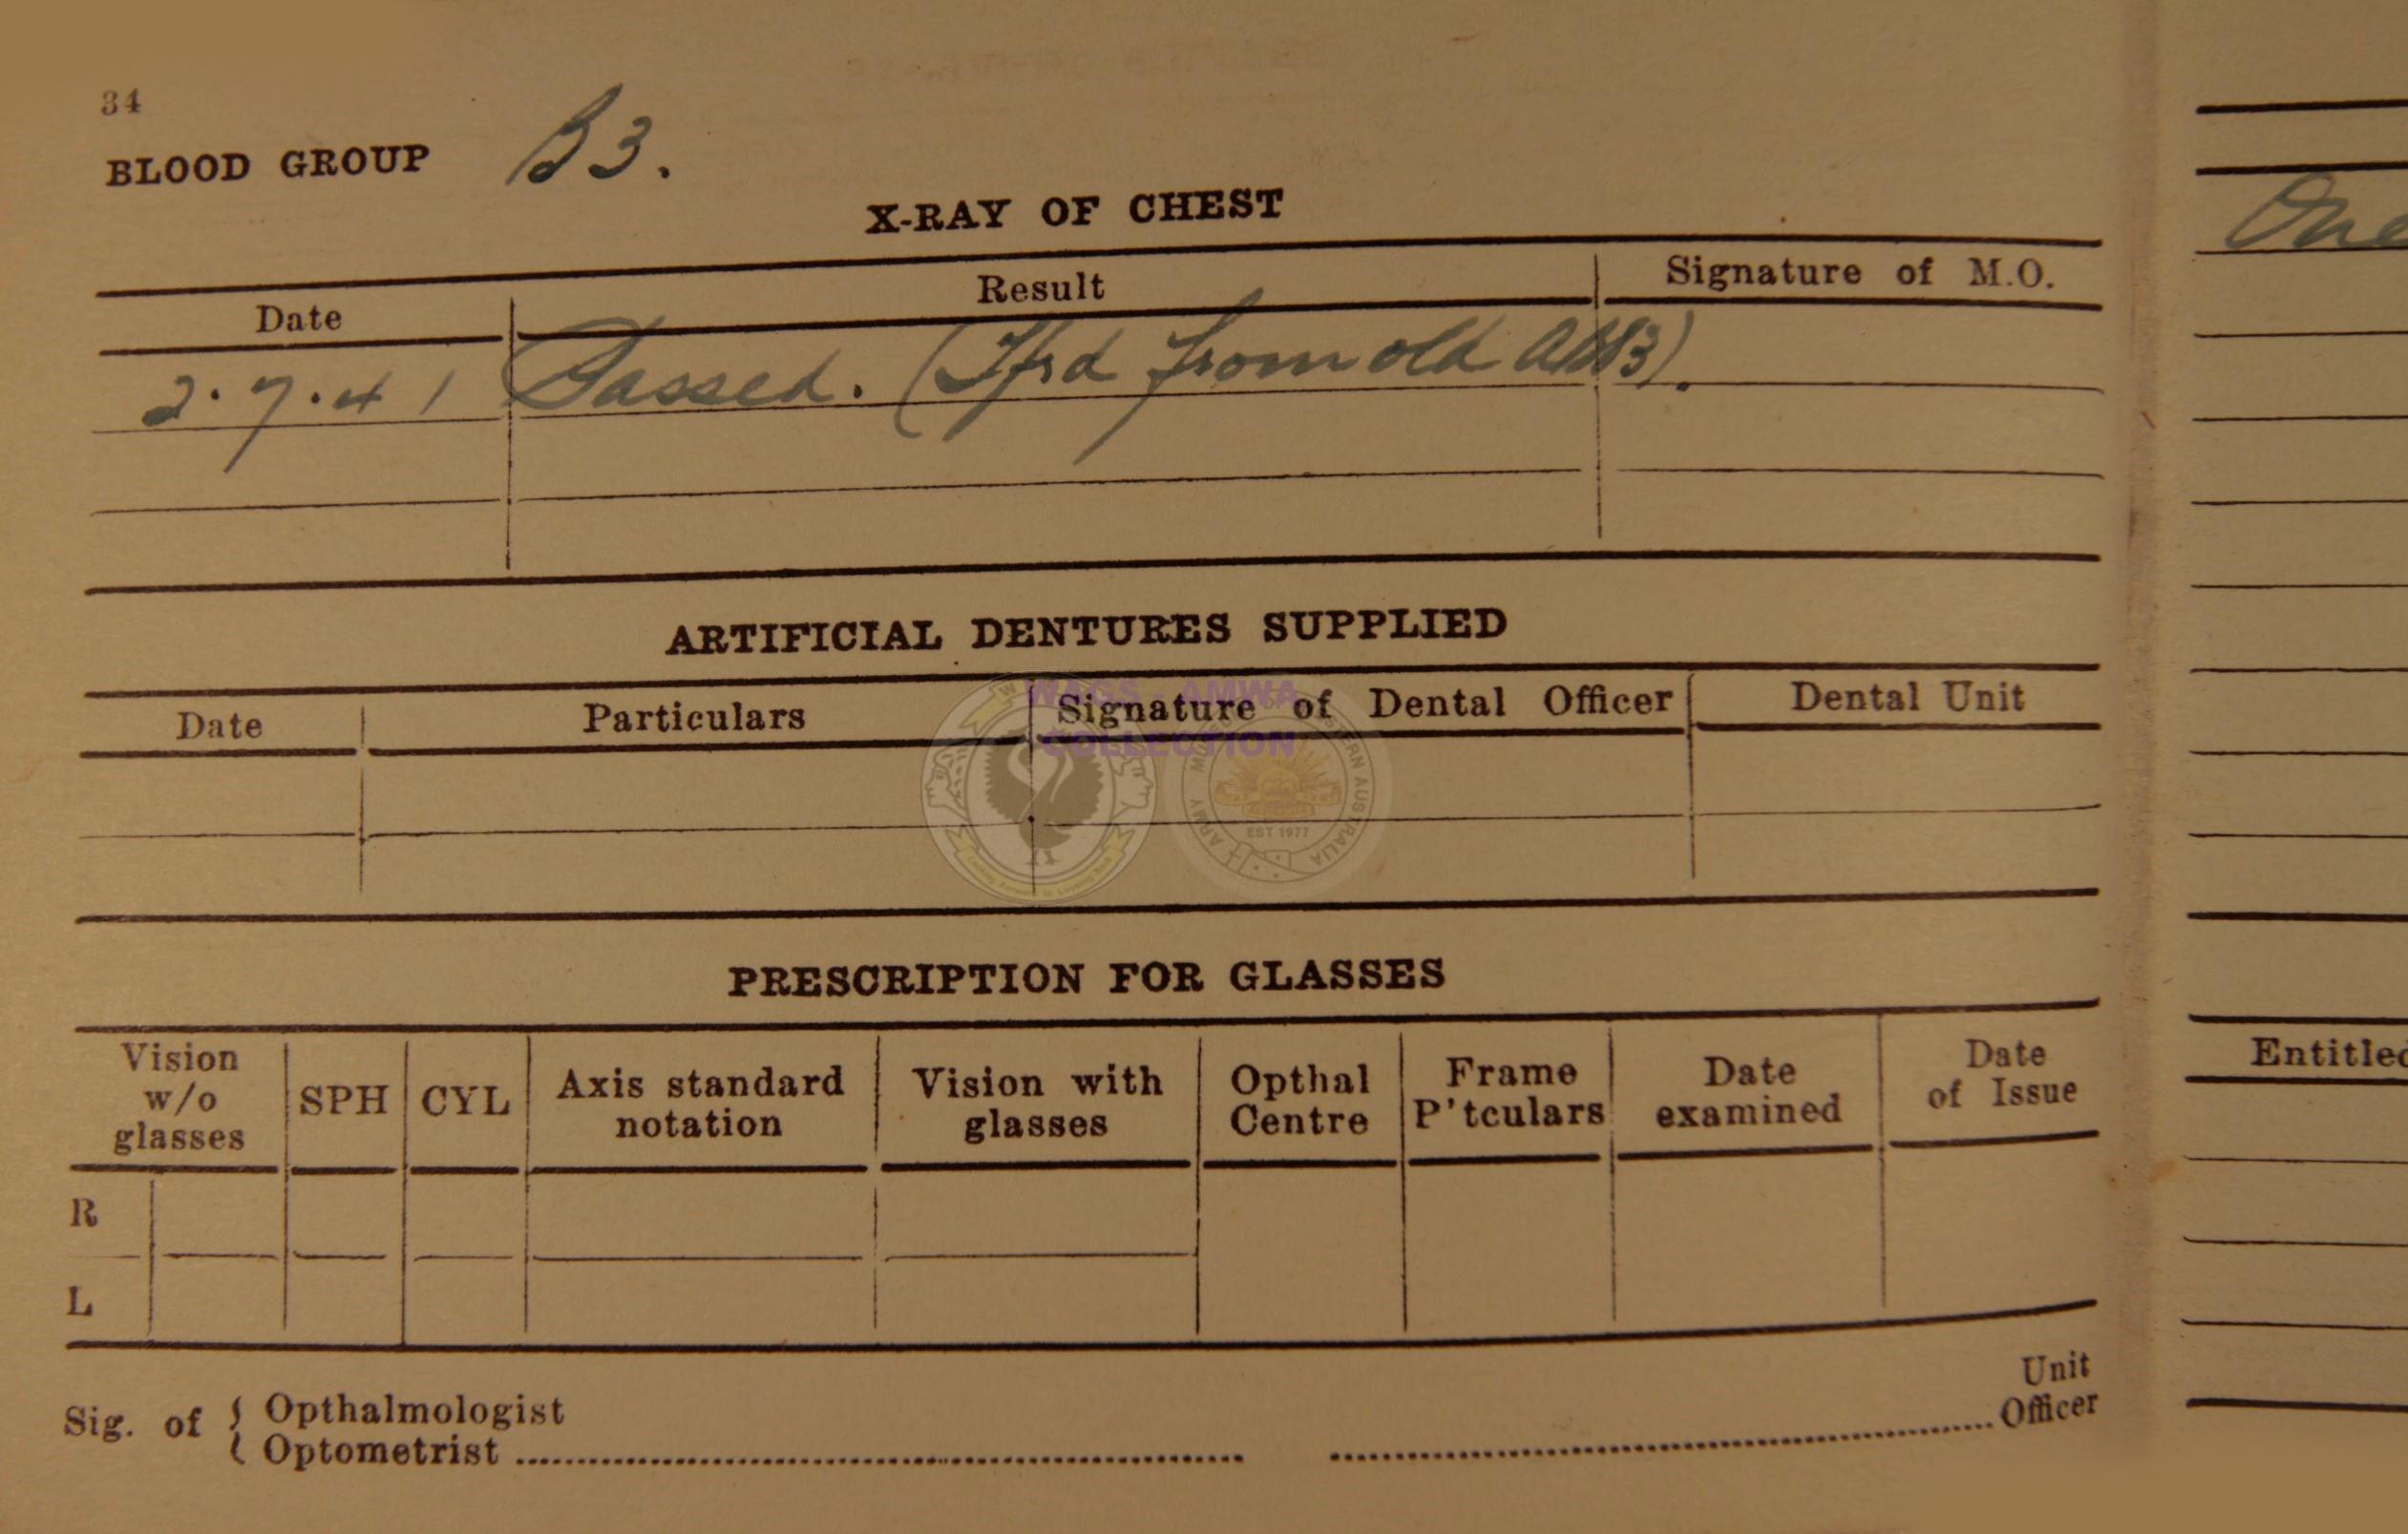 34
BLOOD GROUP B3.
X-RAY OF CHEST
Date Result Signature of M.O.
2.7.41 Passed. (Tfrd from old AAB3).
ARTIFICIAL DENTURES SUPPLIED
WAGS - AMWA
COLLECTION
Date Particulars Signature of Dental Officer Dental Unit
EST 1977
PRESCRIPTION FOR GLASSES
Vision w/o glasses SPH CYL Axis standard notation Vision with glasses Opthal Centre Frame P'tculars Date examined Date of Issue
R
L
Sig. of { Opthalmologist
Optometrist
Unit
Officer
One
Entitled